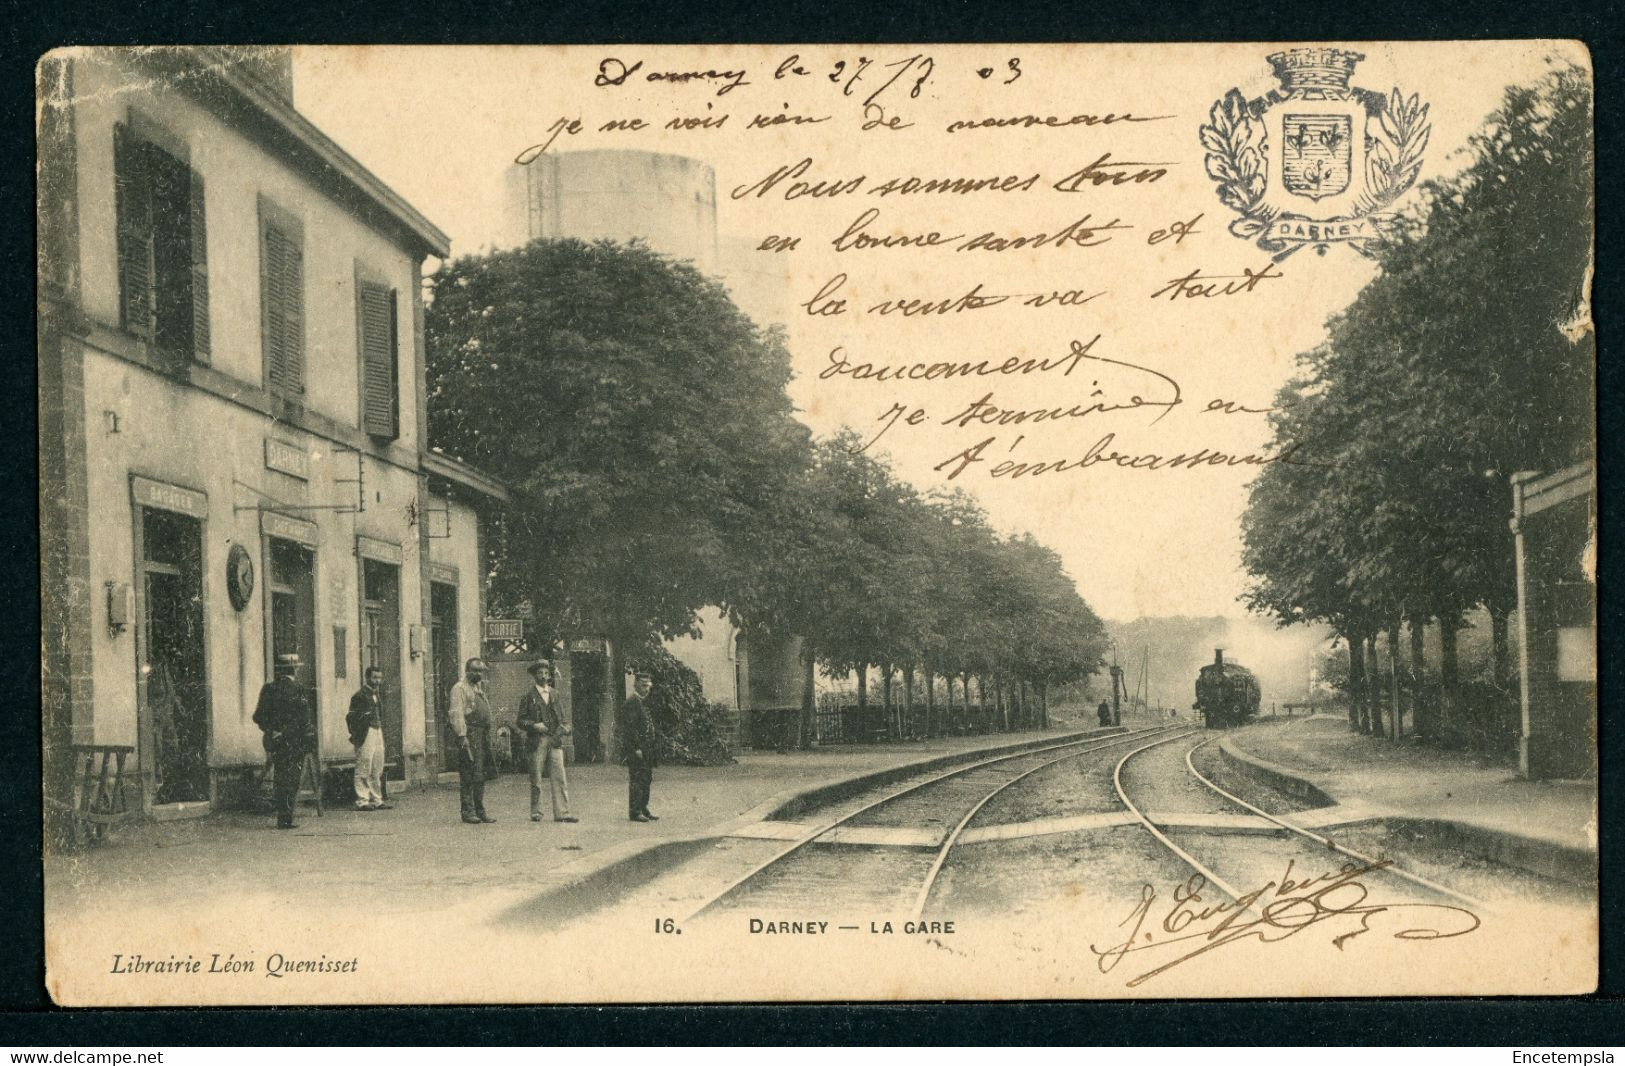 Darney le 27/8 03
je ne vois rien de nouveau
Nous sommes tous
en bonne santé et
la vente va tout
doucement
je termine en
t'embrassant
DARNEY
DARNEY
BAGAGES
SORTIE
J. Eugène
16. DARNEY — LA GARE
Librairie Léon Quenisset
delcampe.net
Encetempsla